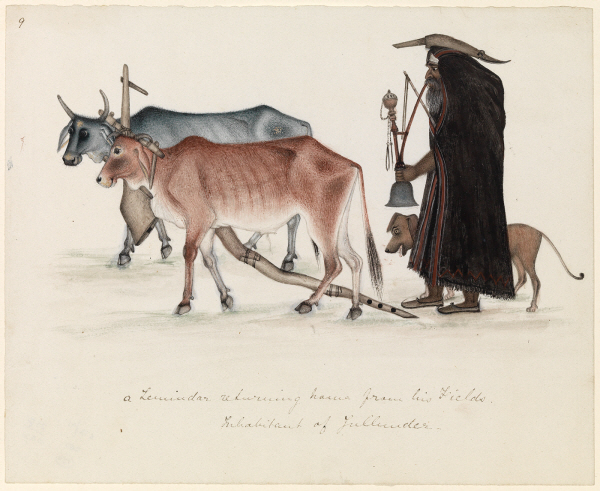 9
a Zemindar returning home from his Fields.
Inhabitant of Jullunder.